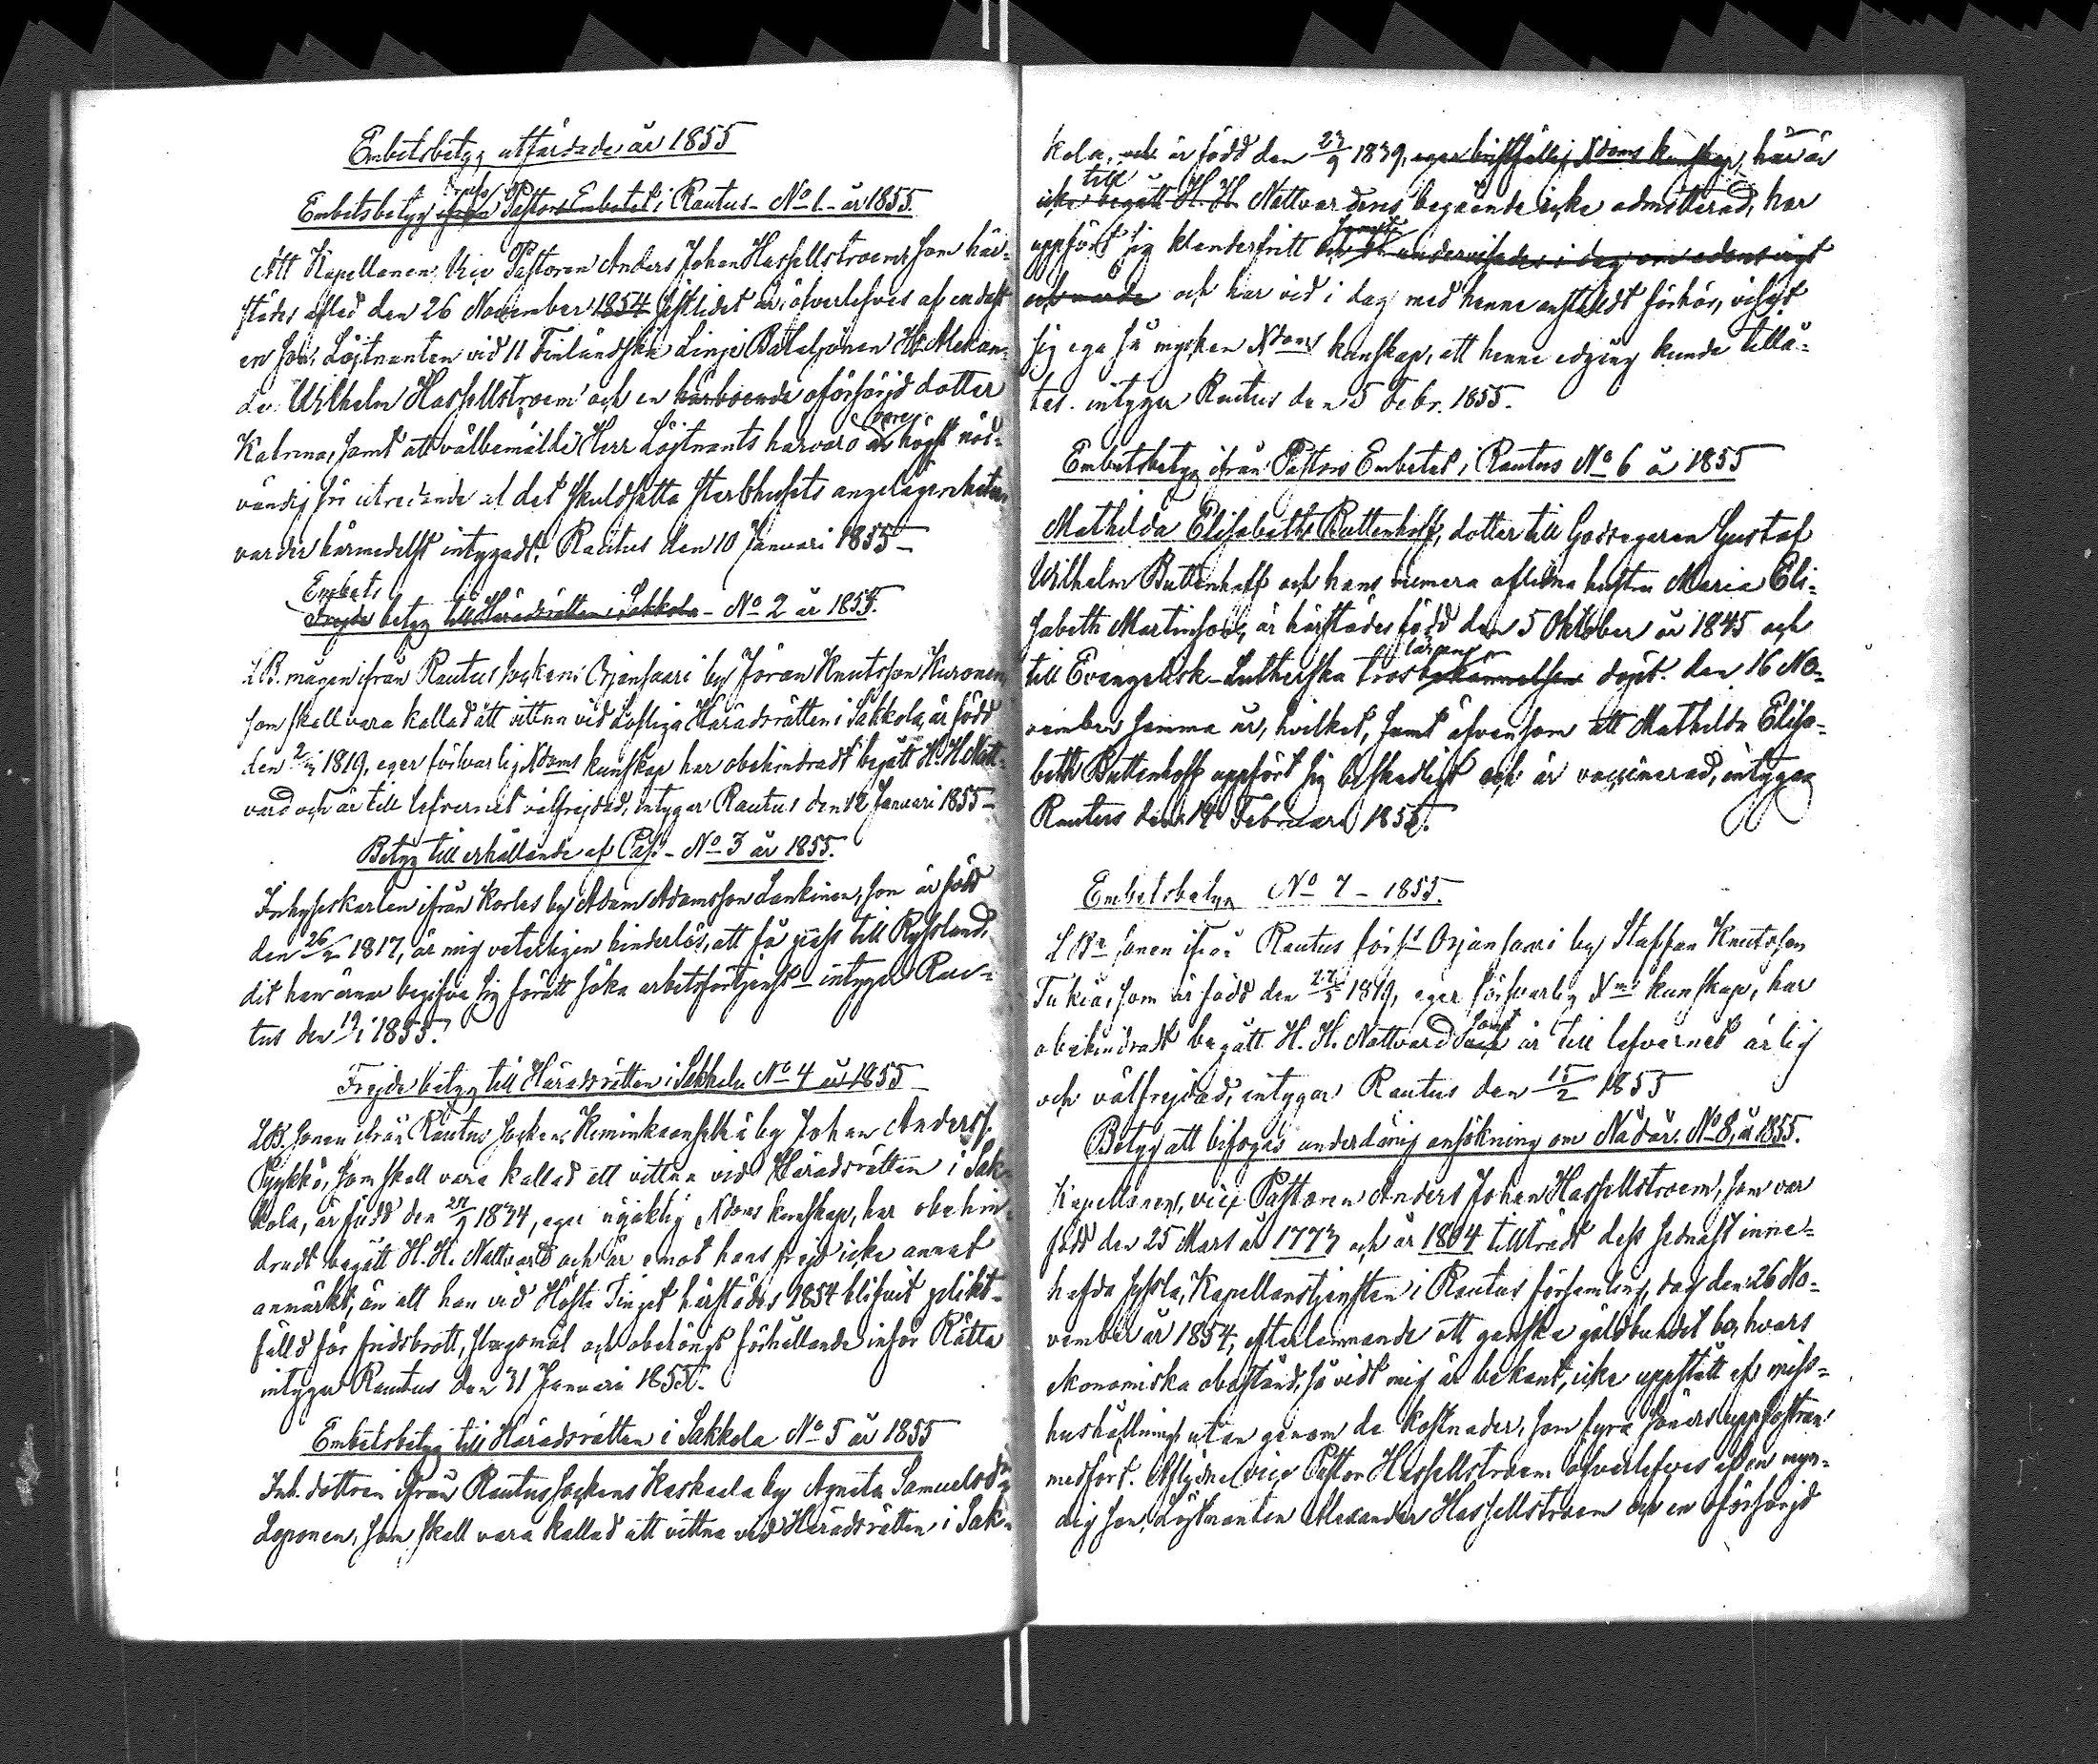 Embetsbetyg utfärdade år 1855
Embetsbetyg ifrån Pastors Embetet i Rautus No 1 år 1855.
Att Kapellanen, Vice Pastoren Anders Johan Hassellstroem, som här-
städes afled den 26 November 1854 sistlidet år, öfverlefves af endast
en son, Löjtnanten vid 11 Finländska Linje Bataljonen Hr Alexan-
der Wilhelm Hassellstroem och en härboende oförsörjd dotter
Katrina, samt att välbemälde Herr Löjtnants härvaro är högst nöd-
vändig för utredande af det skuldsatta sterbhusets angelägenheter
varder härmedelst intygadt. Rautus den 10 Januari 1855 –
Embets
Frejde betyg till Häradsrätten i Sakkola – No 2 år 1855.
LB. mågen ifrån Rautus socken Orjansaari by Jöran Knutsson Kuronen
som skall vara kallad att vittna vid Lofliga Häradsrätten i Sakkola, är född
den 1819, eger försvarlig Xdoms kunskap har obehindradt begått H. H. Natt-
vard och är till lefvernet välfrejdad, intygar Rautus den 12 Januari 1855 –
Betyg till erhållande af Pass – No 3 år 1855.
Inhyseskarlen ifrån Korles by Adam Adamsson Lankinen, som är född
den 26/2 1817, är mig veterligen hinderlös, att få pass till Ryssland,
dit han ärnar begifva sig för att söka arbetsförtjenst – intygar Rau-
tus den 19/1 1855.
Frejde betyg till Häradsrätten i Sakkola No 4 år 1855 –
LB. sonen ifrån Rautus socken Keminkaanselkä by Johan Anderss.
Pykkö, som skall vara kallad att vittna vid Häradsrätten i Sak-
kola, är född den 27/9 1834, eger nöjaktig Xdoms kunskap, har obehin-
dradt begått H. H. Nattvard och är emot hans frejd icke annat
anmärkt, än att han vid Höste Tinget härstädes 1854 blifvit plikt-
fälld för fridsbrott, slagsmål och obehörigt förhållande inför Rätta
intygar Rautus den 31 Januari 1855.
Embetsbetyg till Häradsrätten i Sakkola No 5 år 1855
Inh. dottren ifrån Rautus sockens Kaskaala by Agneta Samuelsdr
Loponen, som skall vara kallad att vittna vid Häradsrätten i Sak-
kola, och är född den 23/9 1839, eger bristfällig Xdoms kunskap, har är
till
icke begått H. H. Nattvardens begående icke admitterad, har
uppfört sig klanderfritt samt undervisades i dag om edens vigt
och värde och har vid i dag med henne anstäldt förhör, visat
sig ega så mycken Xdoms kunskap, att henne edgång kunde tillå-
tas. intygar Rautus den 5 Febr. 1855.
Embetsbetyg ifrån Pastors Embetet i Rautus No 6 år 1855
Mathilda Elisabeth Buttenhoff, dotter till Godsegaren Gustaf
Wilhelm Buttenhoff och hans numera aflidna hustru Maria Eli-
sabeth Martinson, är härstädes född den 5 Oktober år 1845 och
läran
till Evangelisk-Lutherska trosbekännelsen döpt den 16 No-
vember samma år, hvilket, samt äfvensom att Mathilda Elisa-
beth Buttenhoff uppfört sig beskedligt och är vaccinerad, intygar
Rautus den 14 Februari 1855.
Embetsbetyg No 7 – 1855.
LBr sonen ifrån Rautus förs:s Orjansaari by Staffan Knutsson
Tukia, som är född den 27/5 1819, eger försvarlig Xms kunskap, har
samt
obehindradt begått H. H. Nattvard och är till lefvernet ärlig
och välfrejdad, intygar Rautus den 15/2 1855
Betyg att bifogas underdånig ansökning om Nådår. No 8, år 1855.
Kapellanen, vice Pastoren Anders Johan Hassellstroem, som var
född den 25 Mars år 1773 och år 1804 tillträdt dess sednast inne-
hafda syssla, Kapellanstjensten i Rautus församling, dog den 26 No-
vember år 1854, efterlemnande ett ganska gäldbundet bo, hvars
ekonomiska obestånd, så vidt mig är bekant, icke uppstått af miss-
hushållning, utan genom de kostnader, som fyra söners uppfostran
medfört. Aflidne vice Pastor Hassellstroem öfverlefves af en myn-
dig son, Löjtnanten Alexander Hassellstroem och en oförsörjd